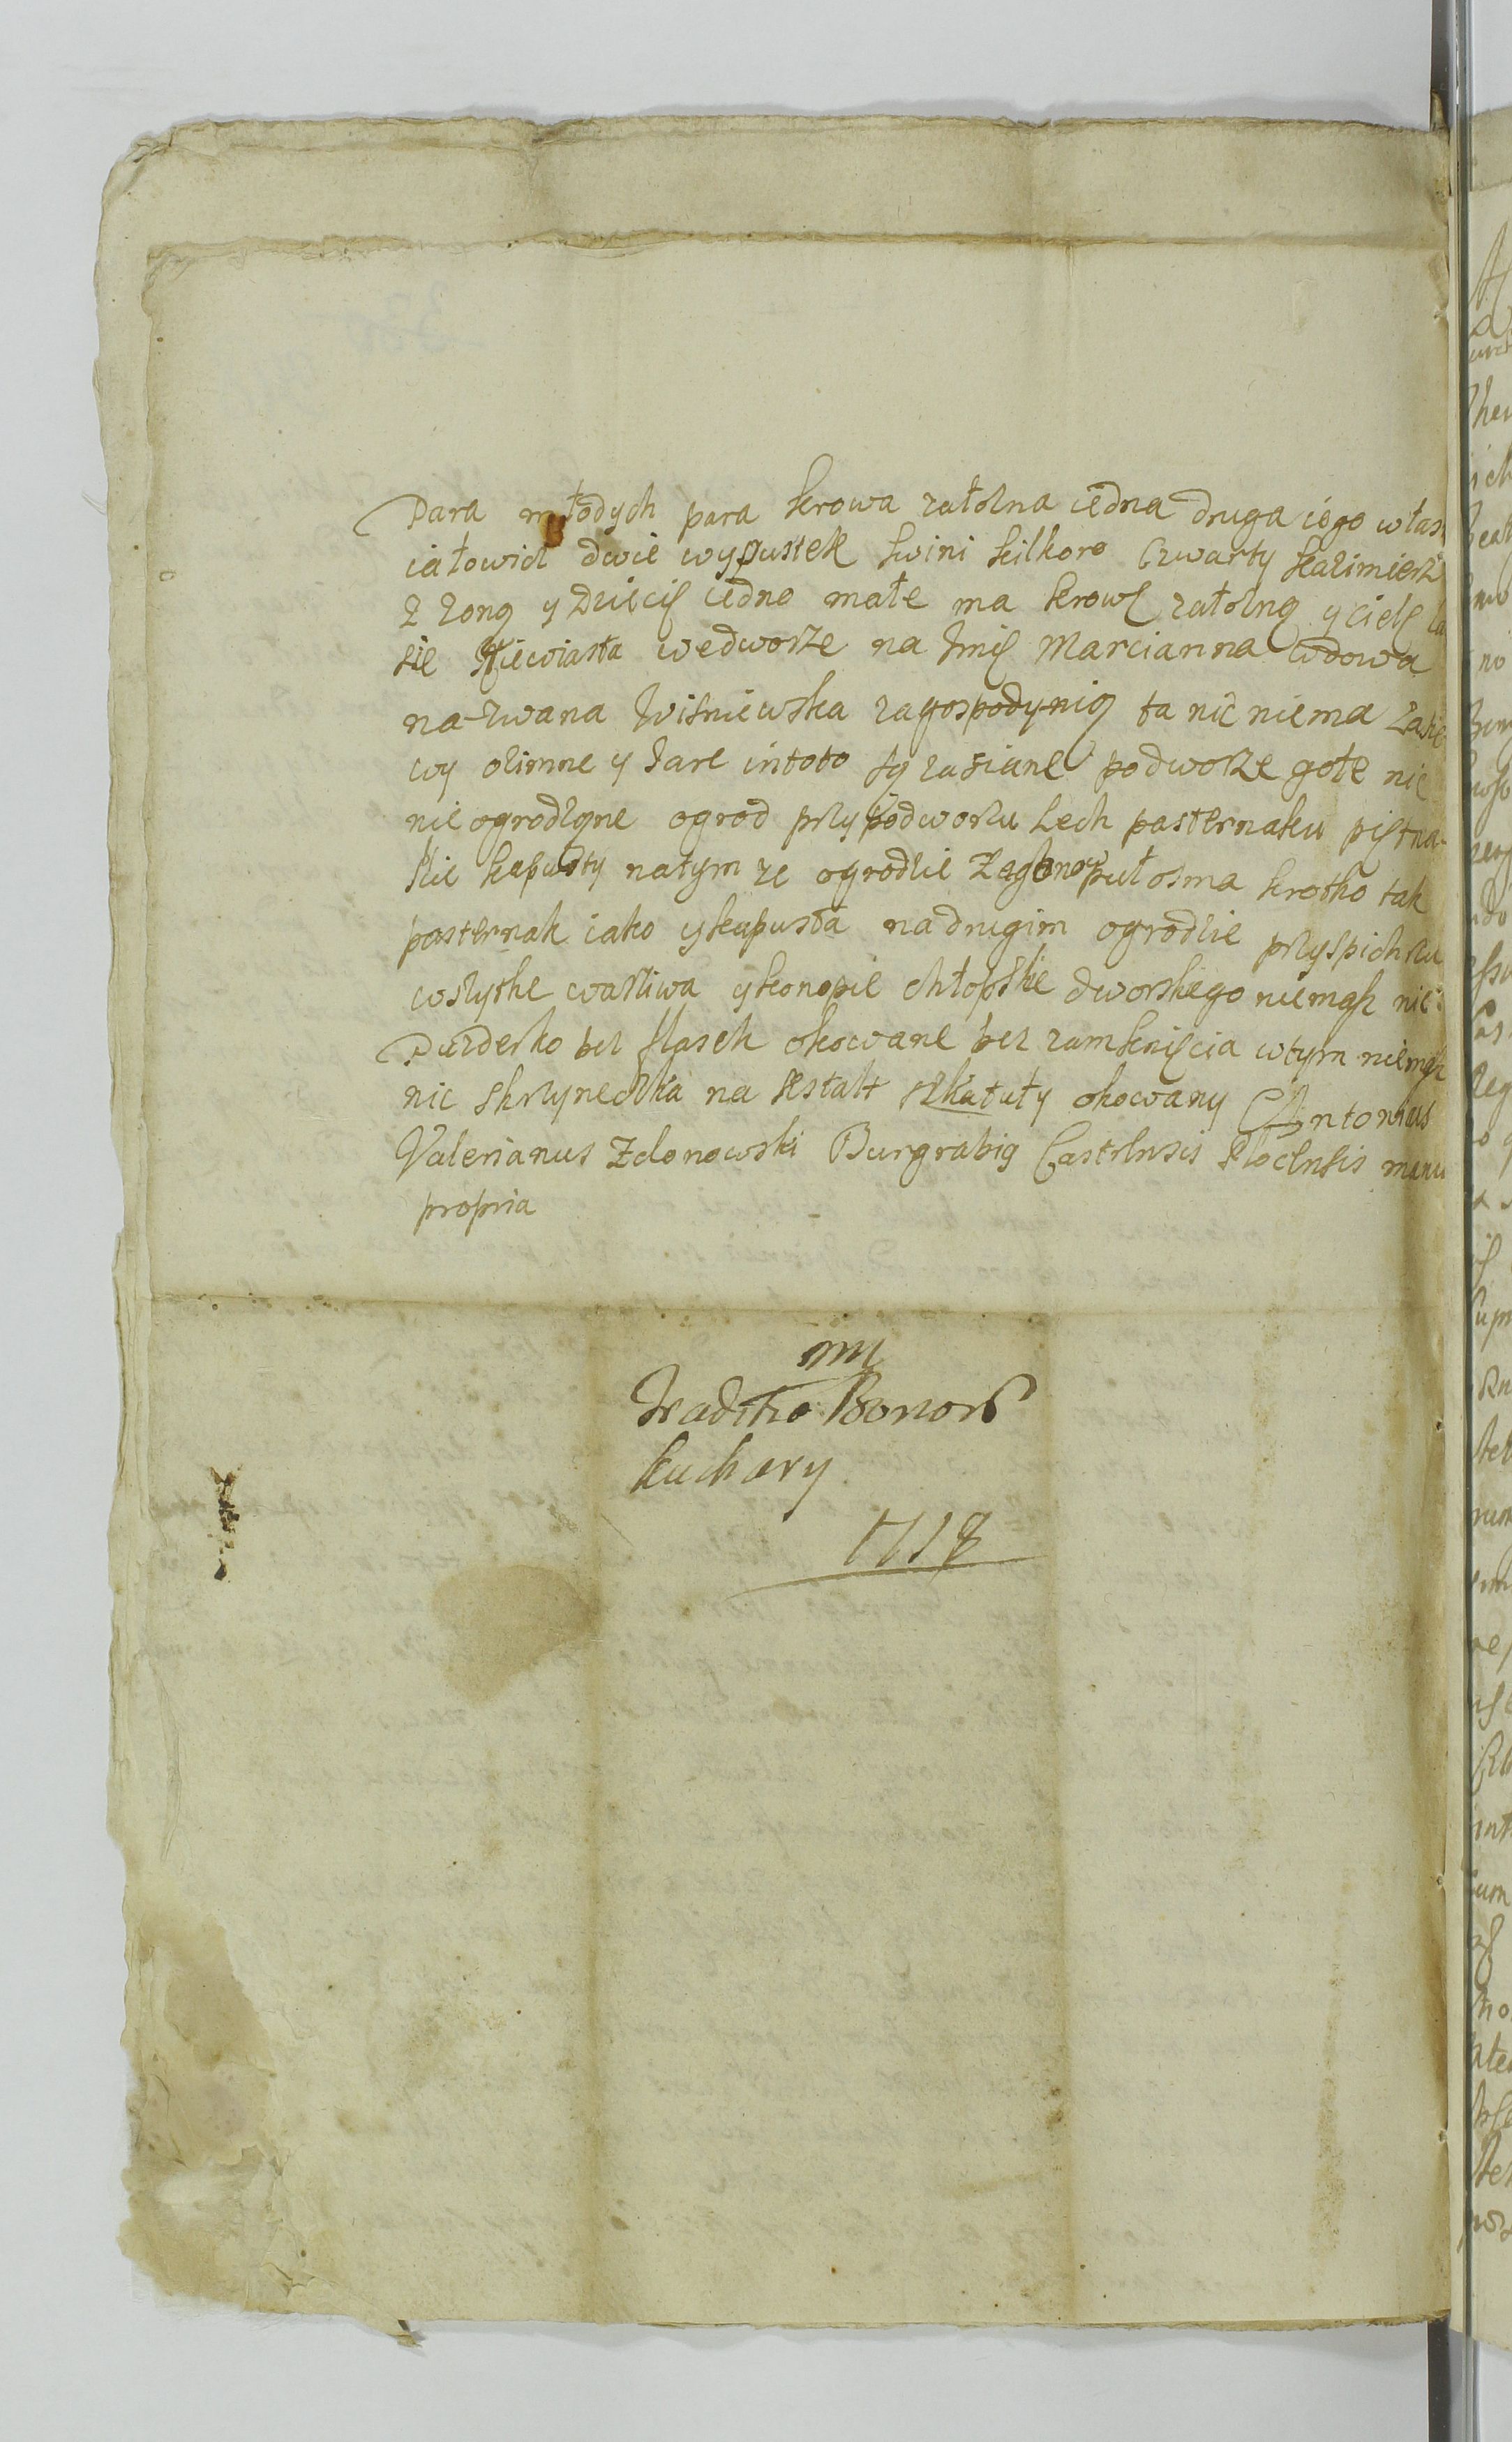 Para młodych para krowa załozna iedna druga iego własn
iałowic dwie wypustek swini kilkoro Czwarty kazimierz
z zoną y Dziecię iedno małe ma krowę załozną y cielę
sie Niewiasta wedworze na Imię Marcianna wdowa
na-zwana Wisniewska zagospodynią ta nic niema Zasie
wy ozimne y Jare intoto są zasiane podworze gołe nie
nie ogrodzone ogrod przypodworzu Lech pasternaku piętna-
scie kapusty natym ze ogrodzie Zagonow pułosma krotko tak
pasternak iako ykapusta nadrugim ogrodzie przyspichrzu
wszytke warziwa ykonopie chłopskie dworskiego niemasz nic
Puzderko bez flasek okowane bez zamknięcia wtym niemasz
nic skrzyneczka na kstałt szkatuły okowany Antonius
Valerianus Zdonowski Burgrabig Castrensis Plocensis manu
propria
Traditio Bonor
kuchary
1718